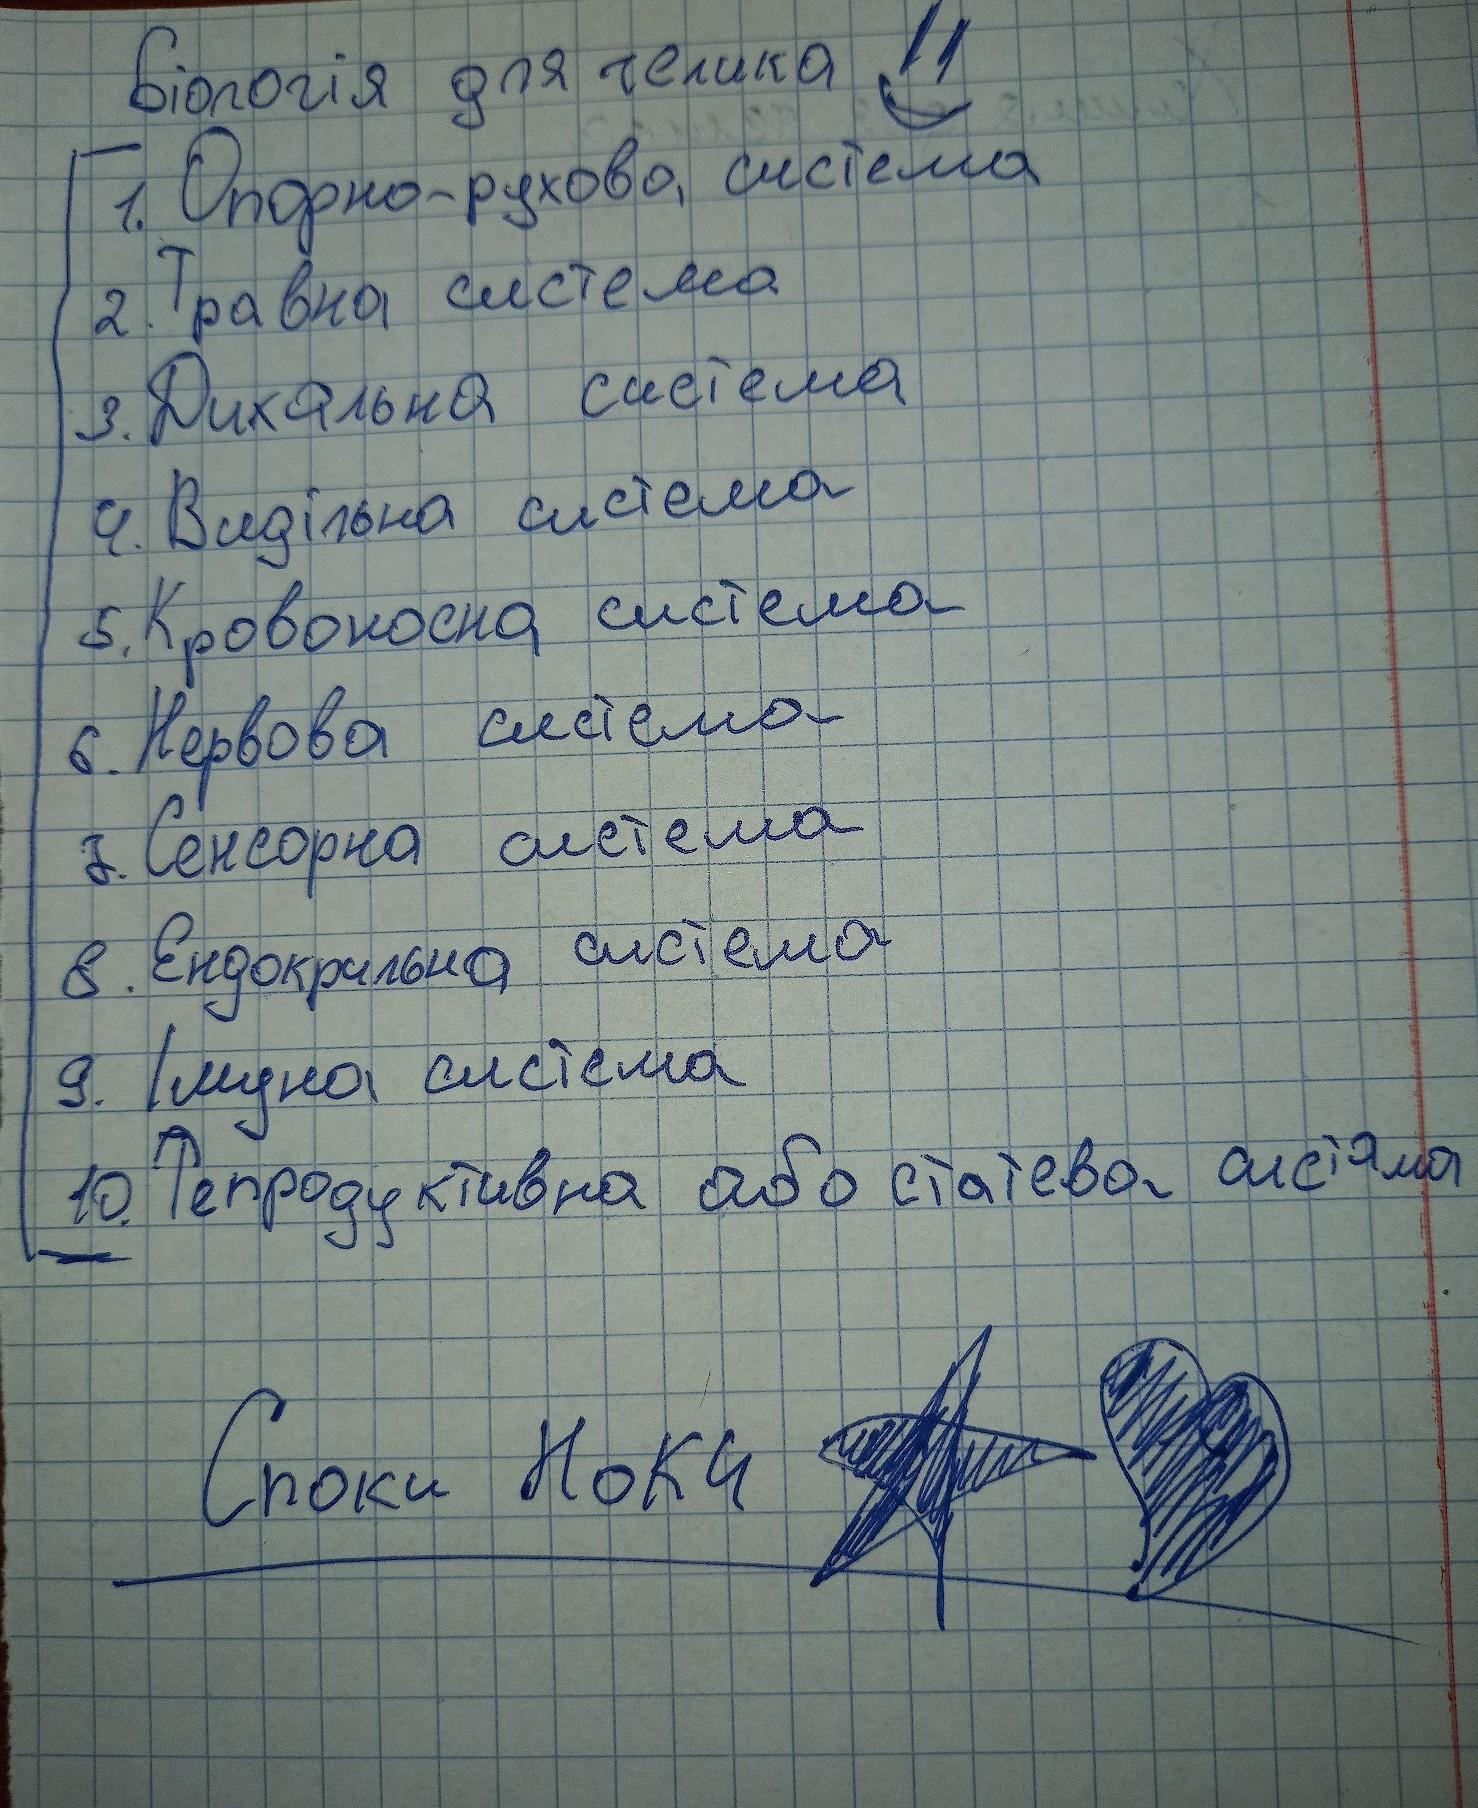 Біологія для челика
1. Опорно-рухова система
2. Травна система
3. Дихальна система
4. Видільна система
5. Кровоносна система
6. Нервова система
7. Сенсорна система
8. Ендокрильна система
9. Імуна система
10. Репродуктивна або статева систяма
Споки Ноки